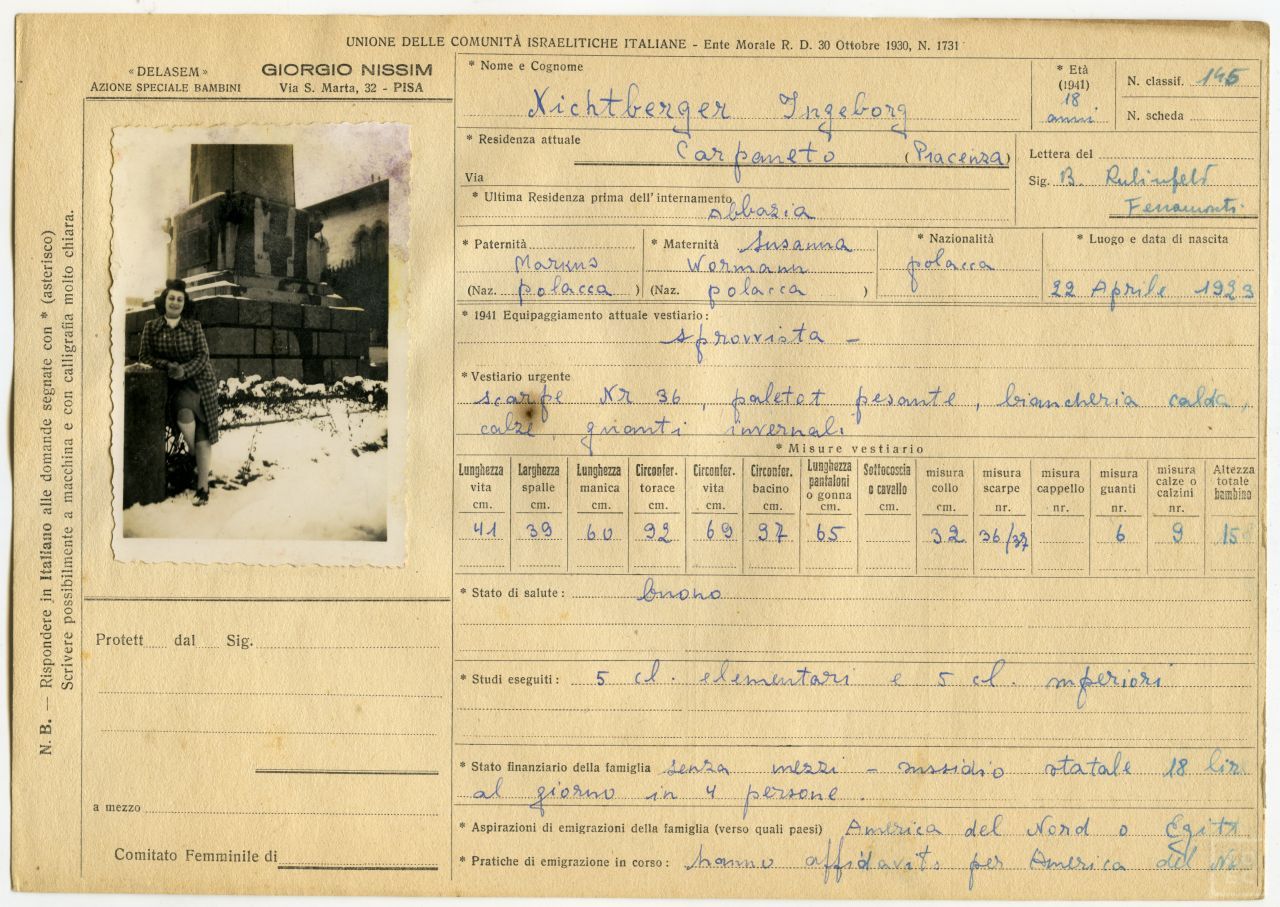 UNIONE DELLE COMUNITÀ ISRAELITICHE ITALIANE - Ente Morale R. D. 30 Ottobre 1930, N. 1731
«DELASEM»
AZIONE SPECIALE BAMBINI
GIORGIO NISSIM
Via S. Marta, 32 - PISA
N. B. — Rispondere in Italiano alle domande segnate con * (asterisco)
Scrivere possibilmente a macchina e con calligrafia molto chiara.
Protett dal Sig.
a mezzo
Comitato Femminile di
* Nome e Cognome
Nichtberger Ingeborg
* Età
(1941)
18
anni
N. classif. 145
N. scheda
* Residenza attuale
Carpaneto (Piacenza)
Via
Lettera del
Sig. B. Rubinfeld
Ferramonti
* Ultima Residenza prima dell'internamento
Abbazia
* Paternità
Markus
(Naz. polacca )
* Maternità Susanna
Wormann
(Naz. polacca )
* Nazionalità
polacca
* Luogo e data di nascita
22 Aprile 1923
* 1941 Equipaggiamento attuale vestiario:
sprovvista —
* Vestiario urgente
scarpe Nr 36, paletot pesante, biancheria calda,
calze, guanti invernali
* Misure vestiario
Lunghezza vita cm. 41
Larghezza spalle cm. 39
Lunghezza manica cm. 60
Circonfer. torace cm. 92
Circonfer. vita cm. 69
Circonfer. bacino cm. 97
Lunghezza pantaloni o gonna cm. 65
Sottocoscia o cavallo cm.
misura collo cm. 32
misura scarpe nr. 36/37
misura cappello nr.
misura guanti nr. 6
misura calze o calzini nr. 9
Altezza totale bambino 158
* Stato di salute: buono
* Studi eseguiti: 5 cl. elementari e 5 cl. superiori
* Stato finanziario della famiglia senza mezzi — sussidio statale 18 lir
al giorno in 4 persone.
* Aspirazioni di emigrazioni della famiglia (verso quali paesi) America del Nord o Egitt
* Pratiche di emigrazione in corso: hanno affidavits per America del No